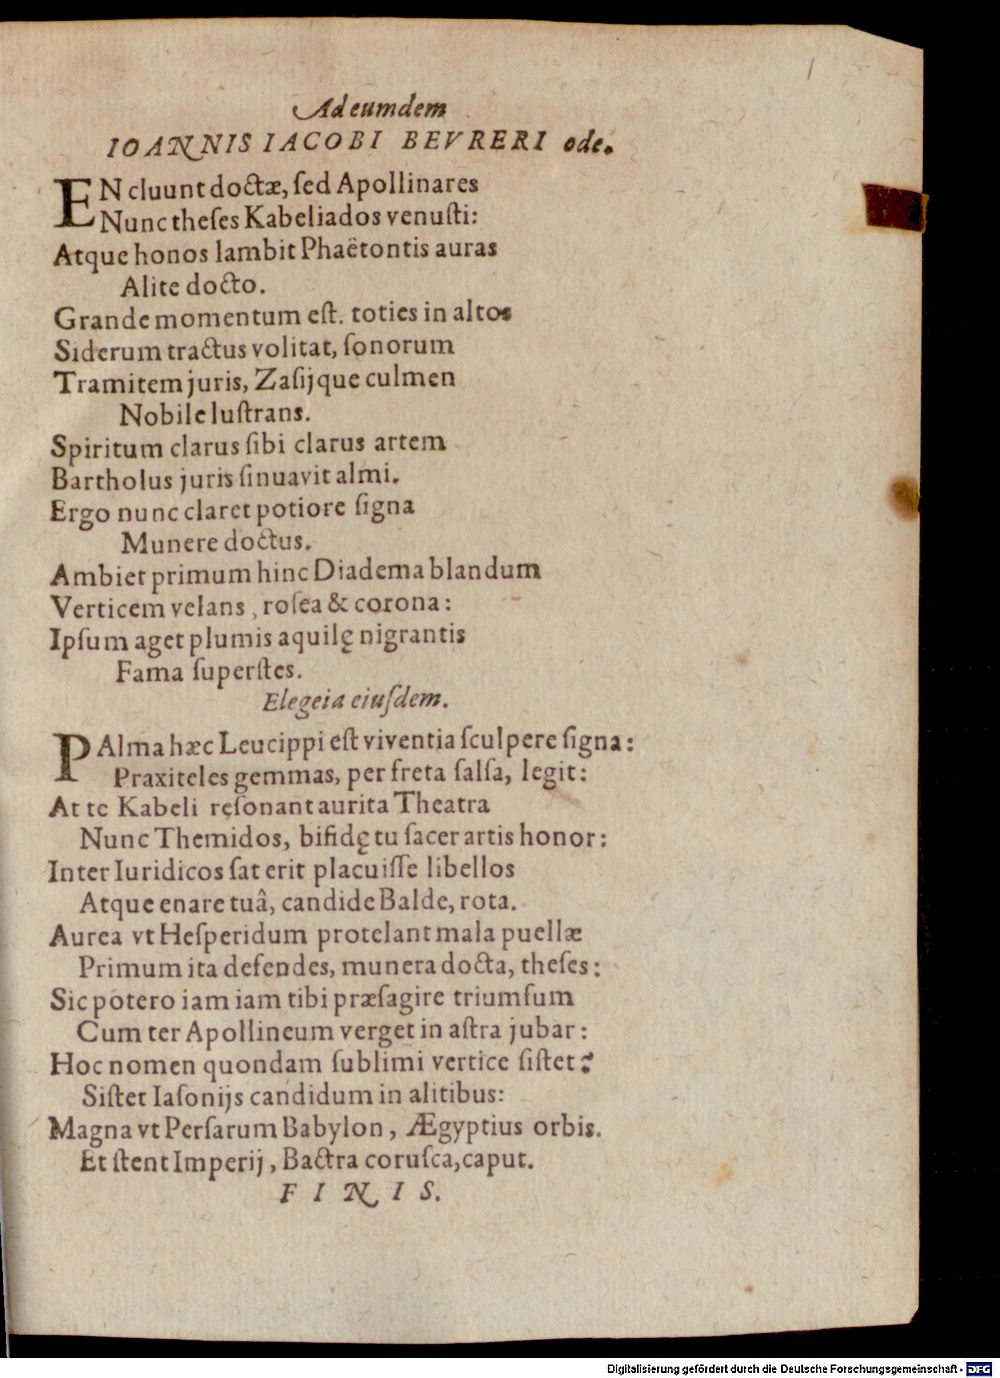 Ad eumdem
IOANNIS IACOBI BEVRERI ode.
EN cluunt doctæ, ſed Apollinares
Nunc theſes Kabeliados venuſti:
Atque honos lambit Phaëtontis auras
Alite docto.
Grande momentum eſt. toties in altos
Siderum tractus volitat, ſonorum
Tramitem juris, Zaſijque culmen
Nobile luſtrans.
Spiritum clarus ſibi clarus artem
Bartholus juris ſinuavit almi.
Ergo nunc claret potiore ſigna
Munere doctus.
Ambiet primum hinc Diadema blandum
Verticem velans, roſea & corona:
Ipſum aget plumis aquilę nigrantis
Fama ſuperſtes.
Elegeia eiuſdem.
PAlma hæc Leucippi eſt viventia ſculpere ſigna:
Praxiteles gemmas, per freta ſalſa, legit:
At te Kabeli reſonant aurita Theatra
Nunc Themidos, bifidę tu ſacer artis honor:
Inter Iuridicos ſat erit placuiſſe libellos
Atque enare tuâ, candide Balde, rota.
Aurea vt Heſperidum protelant mala puellæ
Primum ita defendes, munera docta, theſes:
Sic potero iam iam tibi præſagire triumfum
Cum ter Apollineum verget in aſtra jubar:
Hoc nomen quondam ſublimi vertice ſiſtet?
Siſtet Iaſonijs candidum in alitibus:
Magna vt Perſarum Babylon, Ægyptius orbis.
Et ſtent Imperij, Bactra coruſca, caput.
FINIS.
Digitalisierung gefördert durch die Deutsche Forschungsgemeinschaft - DFG